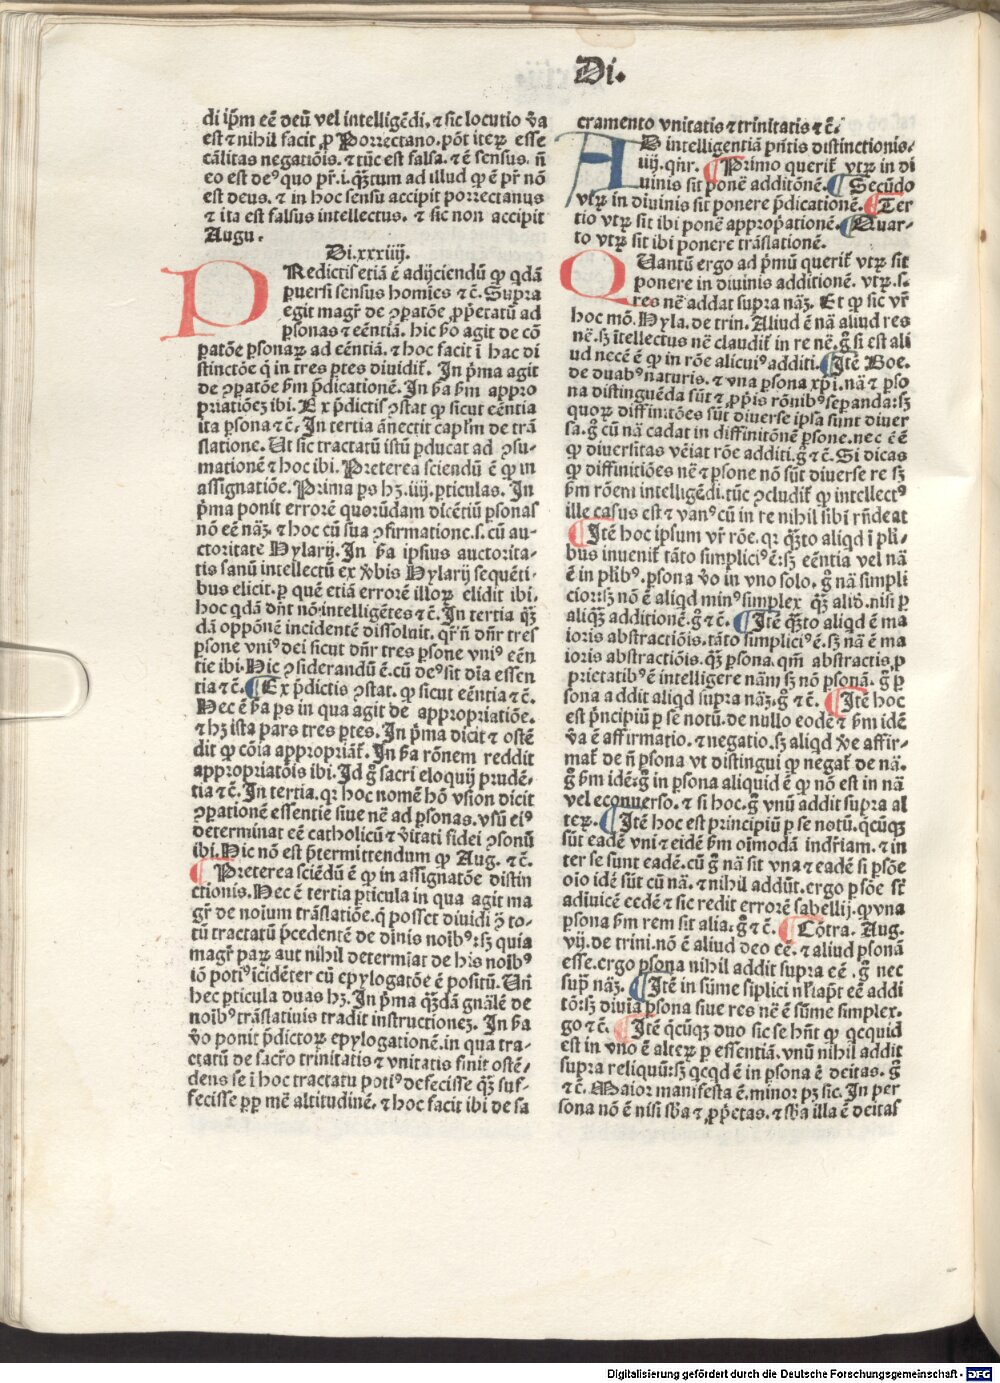 Di.
di ip̄m eē deū vel intelligēdi. ⁊ sic locutio v̄a
est ⁊ nihil facit ꝓ Porrectano. pōt iteꝝ esse
cālitas negatiōis. ⁊ tūc est falsa. ⁊ ē sensus. n̄
eo est deꝰ quo pr̄. i. qꝫtum ad illud ꝙ ē pr̄ nō
est deus. ⁊ in hoc sensu accipit porrectanus
⁊ ita est falsus intellectus. ⁊ sic non accipit
Augu.
Di.xxxiiij.
PRedictis etiā ē adijciendū ꝙ qdā
ꝑuersi sensus homīes ⁊ c̄. Supra
egit magr̄ de ↄꝑatōe ꝓp̄etatū ad
ꝑsonas ⁊ eēntiā. hic v̄o agit de cō
ꝑatōe ꝑsonaꝝ ad eēntiā. ⁊ hoc facit ī hac di
stinctōe q̄ in tres ꝑtes diuidit̄. In p̄ma agit
de ↄꝑatōe ẜm p̄dicationē. In ẜa ẜm appro
priatiōeꝫ ibi. Ex p̄dictis ↄstat ꝙ sicut eēntia
ita ꝑsona ⁊ c̄. In tertia ānectit capl̄m de trā
slatione. Ut sic tractatū istū ꝑducat ad ↄsu-
mationē ⁊ hoc ibi. Preterea sciendū ē ꝙ in
assignatiōe. Prima ꝑs hꝫ .iiij. ꝑticulas. In
p̄ma ponit errorē quorūdam dicētiū ꝑsonas
nō eē nāꝫ. ⁊ hoc cū sua ↄfirmatione .s. cū au-
ctoritate Hylarij. In ẜa ipsius auctorita-
tis sanū intellectū ex v̄bis Hylarij sequēti-
bus elicit. ꝑ quē etiā errorē illoꝝ elidit ibi.
hoc qdā dn̄t nō intelligētes ⁊ c̄. In tertia qꝫ
dā oppōnē incidentē dissoluit. qr̄ n̄ dn̄r tres
ꝑsone vniꝰ dei sicut dn̄r tres ꝑsone vniꝰ eēn
tie ibi. Hic ↄsiderandū ē. cū deꝰ sit dīa essen
tia ⁊ c̄. ¶ Ex p̄dictis ↄstat. ꝙ sicut eēntia ⁊ c̄.
Hec ē ẜa ꝑs in qua agit de appropriatiōe.
⁊ hꝫ ista pars tres ꝑtes. In p̄ma dicit ⁊ ostē
dit ꝙ cōia appropriāt̄. In ẜa rōnem reddit
appropriatōis ibi. Id gͣ sacri eloquij prudē-
tia ⁊ c̄. In tertia. qꝛ hoc nomē hō vsion dicit
ↄꝑationē essentie siue nē ad ꝑsonas. vsū eiꝰ
determinat eē catholicū ⁊ v̄itati fidei ↄsonū
ibi. Hic nō est p̄termittendum ꝙ Aug. ⁊ c̄.
¶ Preterea sciēdū ē ꝙ in assignatōe distin
ctionis. Hec ē tertia ꝑticula in qua agit ma
gr̄ de noīum trāslatiōe. q̄ posset diuidi ꝯ to-
tū tractatū p̄cedentē de dinis noībꝰ: sꝫ quia
magr̄ parū aut nihil determīat de his noībꝰ
iō potiꝰ īcidēter cū epylogatōe ē positū. Un̄
hec ꝑticula duas hꝫ. In p̄ma qꝫdā gnālē de
noībꝰ trāslatiuis tradit instructioneꝫ. In ẜa
v̄o ponit p̄dictoꝝ epylogationē. in qua tra-
ctatū de sacr̄o trinitatis ⁊ vnitatis finit ostē-
dens se ī hoc tractatu potiꝰ defecisse qꝫ suf-
fecisse ꝓp̄ me altitudinē. ⁊ hoc facit ibi de sa
cramento vnitatis ⁊ trinitatis ⁊ c̄.
AD intelligentiā pn̄tis distinctionis.
.iiij. qn̄r. ¶ Primo querit̄ vtꝝ in di
uinis sit ponē additōnē. ¶ Secūdo
vtꝝ in diuinis sit ponere p̄dicationē. ¶ Ter
tio vtꝝ sit ibi ponē apprōpationē. ¶ Quar-
to vtꝝ sit ibi ponere trāslationē.
QUantū ergo ad p̄mū querit̄ vtꝝ sit
ponere in diuinis additionē. vtꝝ .s.
res nē addat supra nāꝫ. Et ꝙ sic vr̄
hoc mō. Hyla. de trin. Aliud ē nā aliud res
nē. sꝫ ītellectus nē claudit̄ in re nē. gͣ si est ali
ud necē ē ꝙ in rōe alicuiꝰ additi. ¶ Itē Boe.
de duabꝰ naturis. ⁊ vna ꝑsona xp̄i. nā ⁊ ꝑso
na distinguēda sūt ⁊ ꝓp̄is rōnibꝰ seꝑanda: sꝫ
quoꝝ diffinitōes sūt diuerse ipsa sunt diuer
sa. gͣ cū nā cadat in diffinitōnē ꝑsone. nec ē ē
ꝙ diuersitas vēiat rōe additi. gͣ ⁊ c̄. Si dicas
ꝙ diffinitiōes nē ⁊ ꝑsone nō sūt diuerse re sꝫ
ẜm rōem intelligēdi. tūc ↄcludit̄ ꝙ intellectꝰ
ille casus est ⁊ vanꝰ cū in re nihil sibi rn̄deat
¶ Itē hoc ipsum vr̄ rōe. qꝛ qꝫto aliqd ī pli-
bus inuenit̄ tāto simpliciꝰ ē: sꝫ eēntia vel nā
ē in plibꝰ. ꝑsona v̄o in vno solo. gͣ nā simpli
cior: sꝫ nō ē aliqd minꝰ simplex qꝫ aliō. nisi ꝑ
aliqꝫ additionē. gͣ ⁊ c̄. ¶ Itē qꝫto aliqd ē ma
ioris abstractiōis. tāto simpliciꝰ ē. sꝫ nā ē ma
ioris abstractiōis. qꝫ ꝑsona. qm̄ abstractis ꝓ
prietatibꝰ ē intelligere nām sꝫ nō ꝑsonā. gͣ ꝑ
sona addit aliqd supra nāꝫ. gͣ ⁊ c̄. ¶ Itē hoc
est p̄ncipiū ꝑ se notū. de nullo eodē ⁊ ẜm idē
v̄a ē affirmatio. ⁊ negatio. sꝫ aliqd v̄e affir-
mat̄ de n̄ ꝑsona vt distingui ꝙ negat̄ de nā.
gͣ ẜm idē: gͣ in ꝑsona aliquid ē ꝙ nō est in nā
vel econuerso. ⁊ si hoc. gͣ vnū addit supra al
teꝝ. ¶ Itē hoc est principiū ꝑ se notū. qcūqꝫ
sūt eadē vni ⁊ eidē ẜm oīmodā indr̄iam. ⁊ in
ter se sunt eadē. cū gͣ nā sit vna ⁊ eadē si ꝑsōe
oīo idē sūt cū nā. ⁊ nihil addūt. ergo ꝑsōe sr̄
adiuicē eedē ⁊ sic redit errorē sabellij. ꝙ vna
ꝑsona ẜm rem sit alia. gͣ ⁊ c̄. ¶ Cōtra. Aug.
vij. de trini. nō ē aliud deo eē. ⁊ aliud ꝑsonā
esse. ergo ꝑsona nihil addit supra eē. gͣ nec
sup̄ nāꝫ. ¶ Itē in sūme siplici nō rāp̄t eē addi
tō: sꝫ diuīa ꝑsona siue res nē ē sūme simplex.
go ⁊ c̄. ¶ Itē qcūqꝫ duo sic se hn̄t ꝙ qcquid
est in vno ē alteꝝ ꝑ essentiā. vnū nihil addit
supra reliquū: sꝫ qcqd ē in ꝑsona ē deitas. gͣ
⁊ c̄. Maior manifesta ē. minor pꝫ sic. In per
sona nō ē nisi sb̄a ⁊ ꝓp̄etas. ⁊ sb̄a illa ē deitas
Digitalisierung gefördert durch die Deutsche Forschungsgemeinschaft - DFG